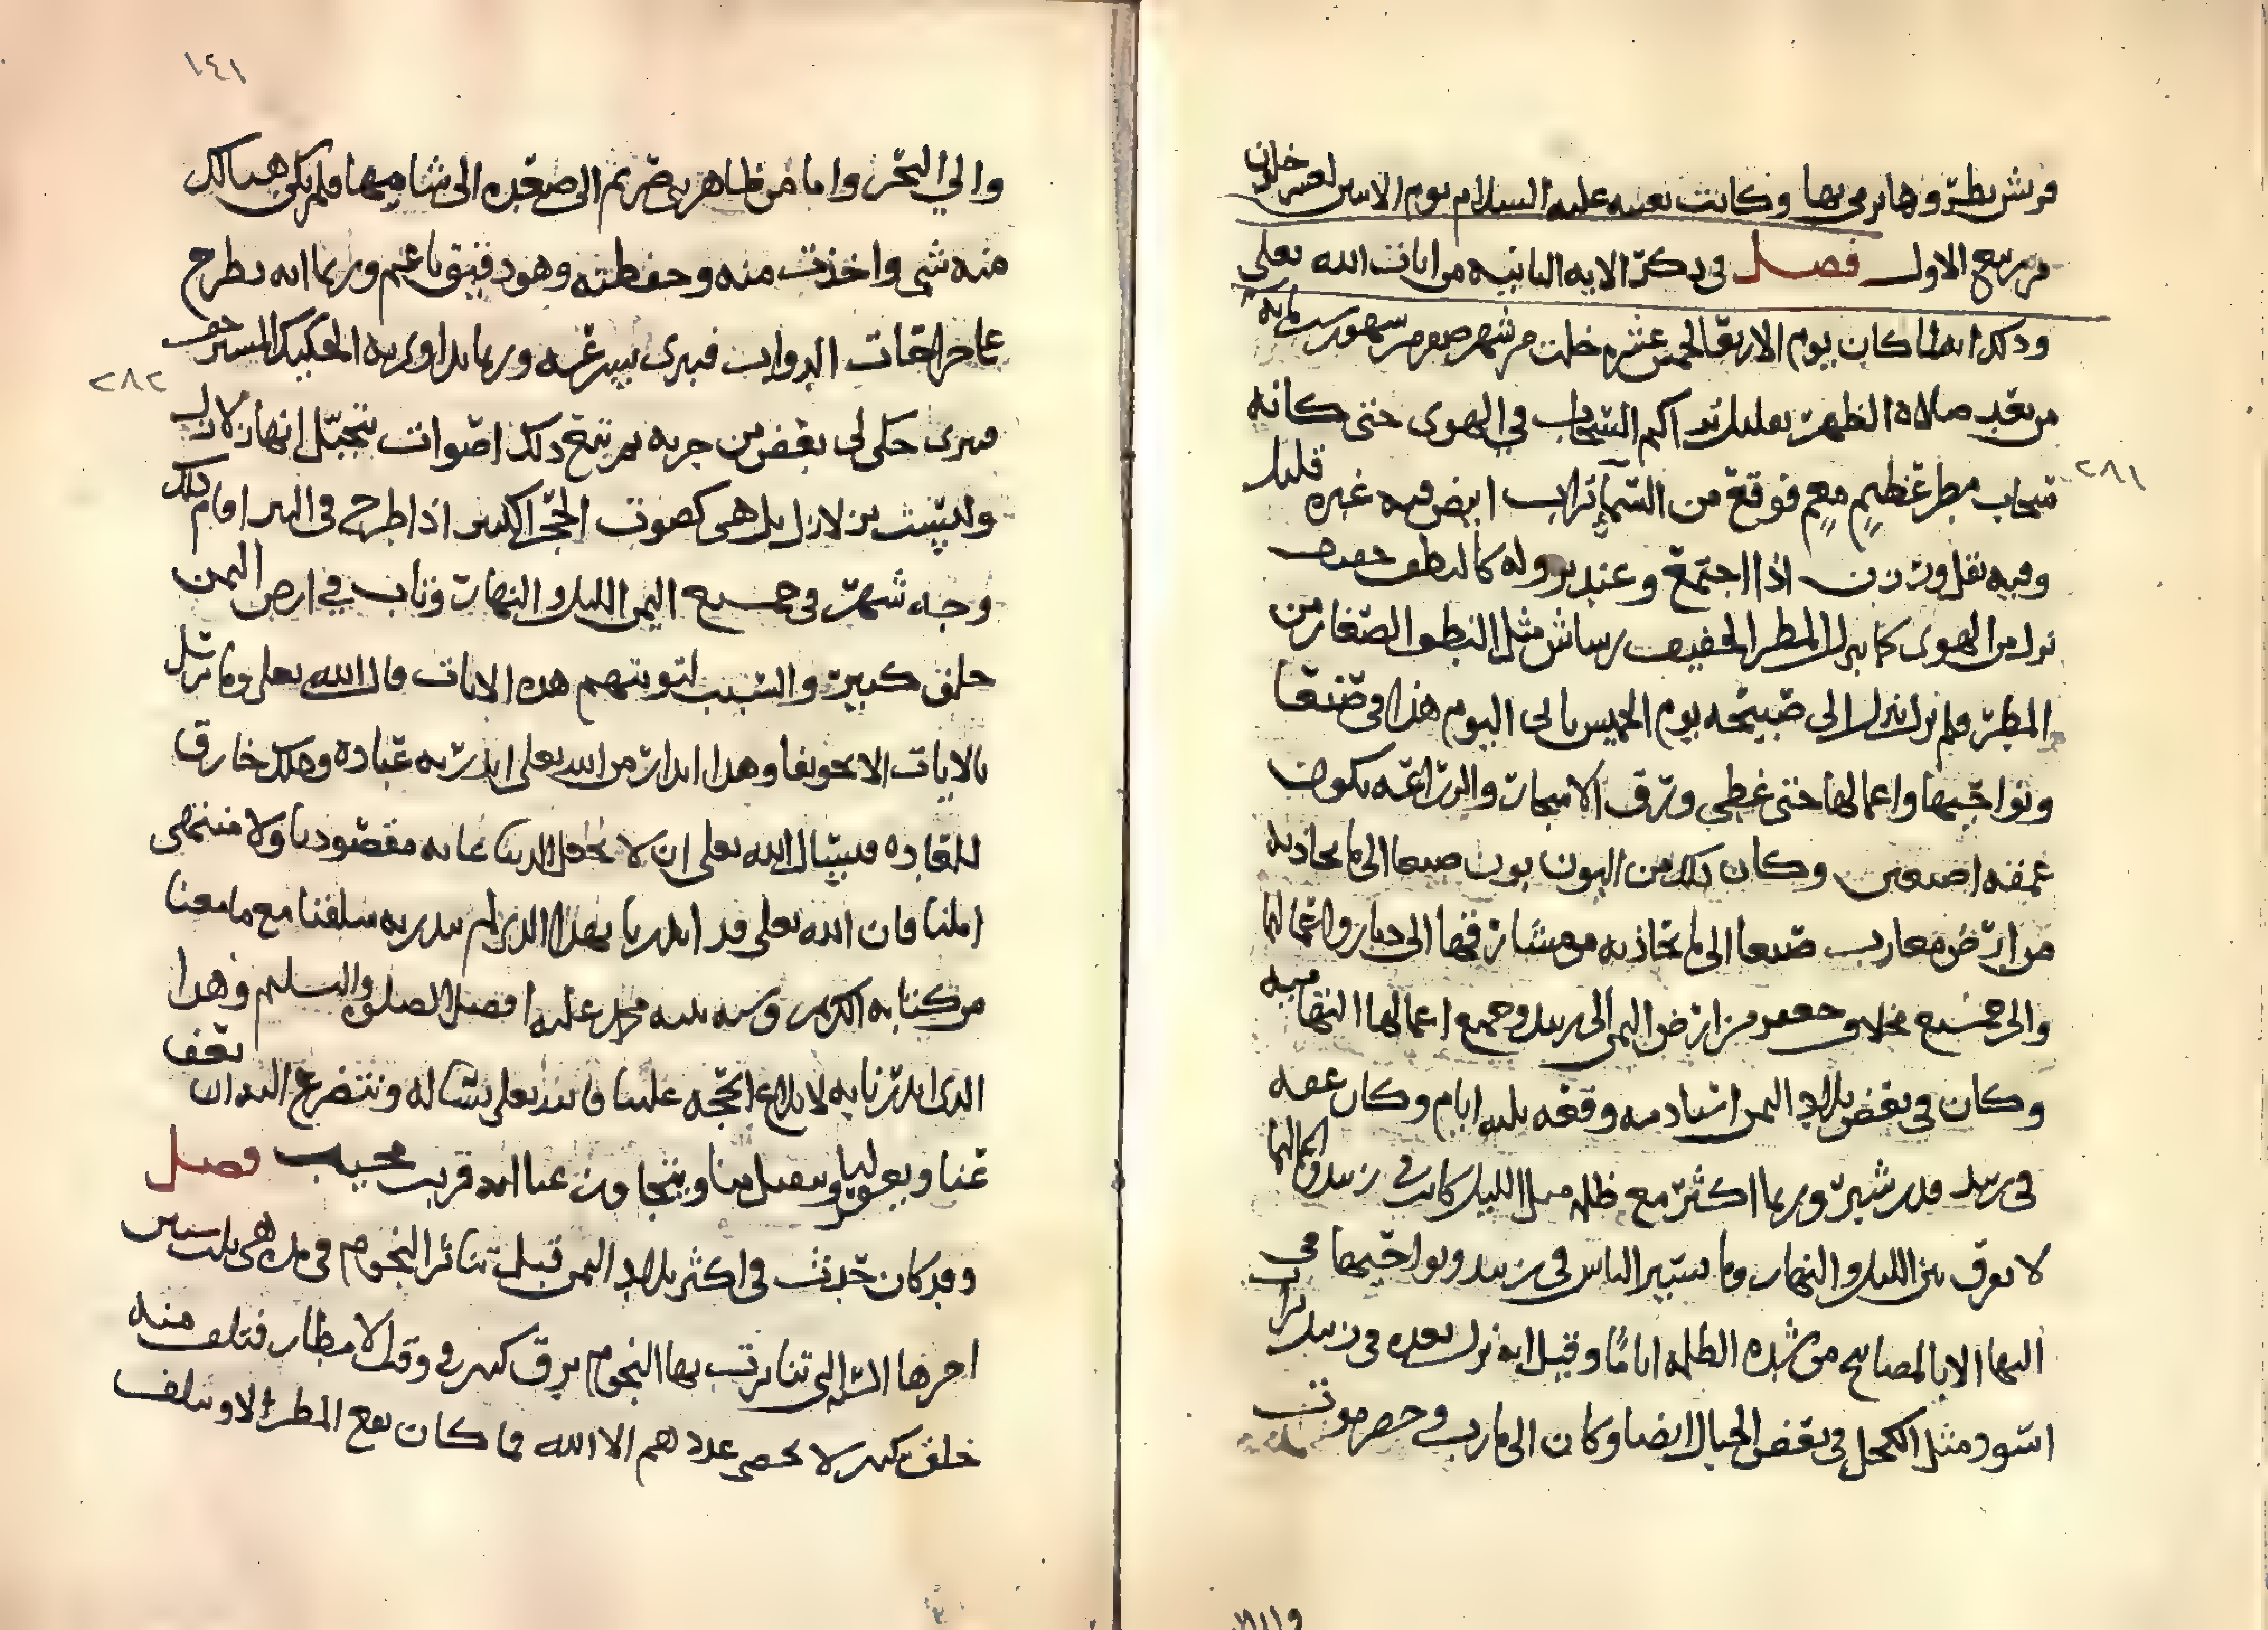 قريش بطرّوها يرمى بها وكانت بعثته عليه السلام يوم الاثنين لعشر خلون
من ربيع الاول فصل في ذكر الاية الثانية من ايات الله تعلى
وذلك انه لما كان يوم الاربعا لخمس عشره خلت من شهر صفر من سهور سنة ماية
من بعد صلاة الظهر بقليل تراكم السحاب في الهوى حتى كانه
سحاب مطر عظيم مغيم فوقع من السما تراب ابيض فيه غبره قليل
وفيه ثقل ورزن اذا اجتمع وعند نزوله كالنطف خفيف
نزل من الهوى كما ينزل المطر الخفيف رساش مثل النطف الصغار من
المطر فلم يزل ينزل الى صبيحه يوم الخميس تالى اليوم هذا في صنعا
ونواحيها واعمالها حتى غطى ورق الاشجار والزراعه يكون
عمقه اصبعين وكان ذلك من البون بون صنعا الى ما يحاذيه
من ارض مغارب صنعا الى ما تحاذيه من مشارقها الى ذمار واعمالها
والى جميع مخلاف جعفر من ارض اليمن الى زبيد وجميع اعمالها التهاميه
وكان في بعض بلاد اليمن اشتاد منه وقعه ثلثة ايام وكان عمقه
في زبيد قدر شبر وربما اكثر مع ظلمه مثل الليل كانت في زبيد واعمالها
لا يعرف بين الليل والنهار وما يسير الناس في زبيد ونواحيها في
اليها الا بالمصابيح من شده الظلمه اياما وقيل انه نزل بعده في زبيد تراب
اسود مثل الكحل في بعض الجبال ايضا وكان الى مارب وحضرموت
والى البحر واما من ظاهر بني صريم الى صعده الى شاميها فلم يكن هنالك
منه شي واخذت منه وحفظته وهو دقيق ناعم وربما انه يطرح
على جراحات الدواب فيبرى بسرعه وربما يداوى به الحكيك المستخف
فيبرى حكى لي بعض من جربه ثم تبع ذلك اصوات يتخيل انها زلازل
وليست بزلازل بل هي كصوت الحجر الكبير اذا طرح في البير اقام ذلك
وجه شهر في جميع اليمن الليل والنهار وتاب في ارض اليمن
خلق كبير والسبب لتوبتهم هذه الايات قال الله تعلى وما نرسل
بالايات الا تخويفا وهذا انذار من الله تعلى انذر به عباده وهكذ خارق
للعاده فنسال الله تعلى ان لا يجعل الدنيا غايه مقصودنا ولا منتهى
املنا فان الله تعلى قد انذرنا بهذا الذي لم ينذر به سلفنا مع ما معنا
من كتابه الكريم وسنه نبيه محمد عليه افضل الصلوة والتسليم وهذا
الذي انذرنا به لابلاغ الحجه علينا فالله تعلى نساله ونتضرع اليه ان يعف
عنا ويغفر لنا ويقبل منا ويتجاوز عنا انه قريب مجيب فصل
وقد كان حدث في اكثر بلاد اليمن قبل تناثر النجوم في مده هي ثلث سنين
اخرها السنه التي تناثرت بها النجوم برق كثير في وقت الامطار فتلف منه
خلق كثير لا يحصي عددهم الا الله فما كان يقع المطر الا وتلف
١٤١
٢٨١
٢٨٢